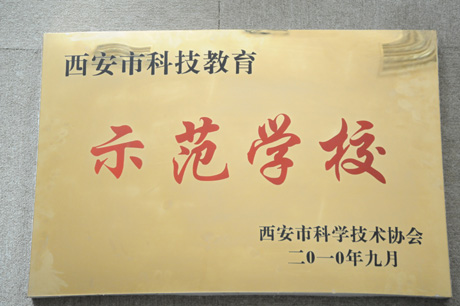 西安市科技教育
示范学校
西安市科学技术协会
二0一0年九月